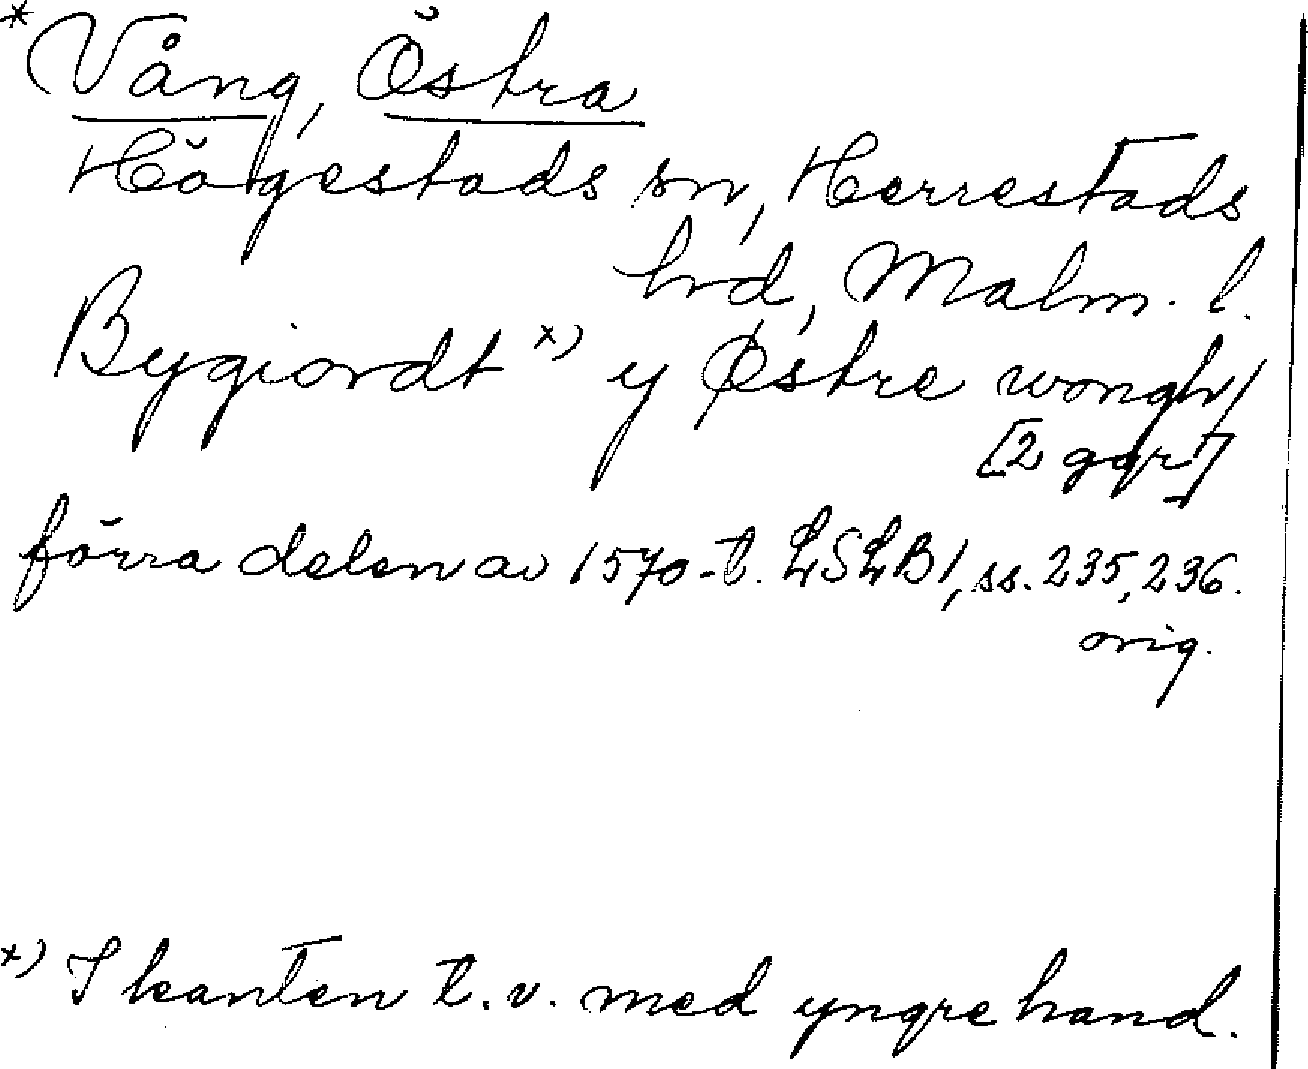 *Vång, Östra
Högestads sn, Herrestads
hrd, Malm. l.
Bygiordt x) y Østre wongh/
[2 ggr]
förra delen av 1570-t. LSLB1, ss. 235, 236.
orig.
x) I kanten t.v. med yngre hand.